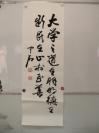 大学之道在明明德在
新民在止於至善